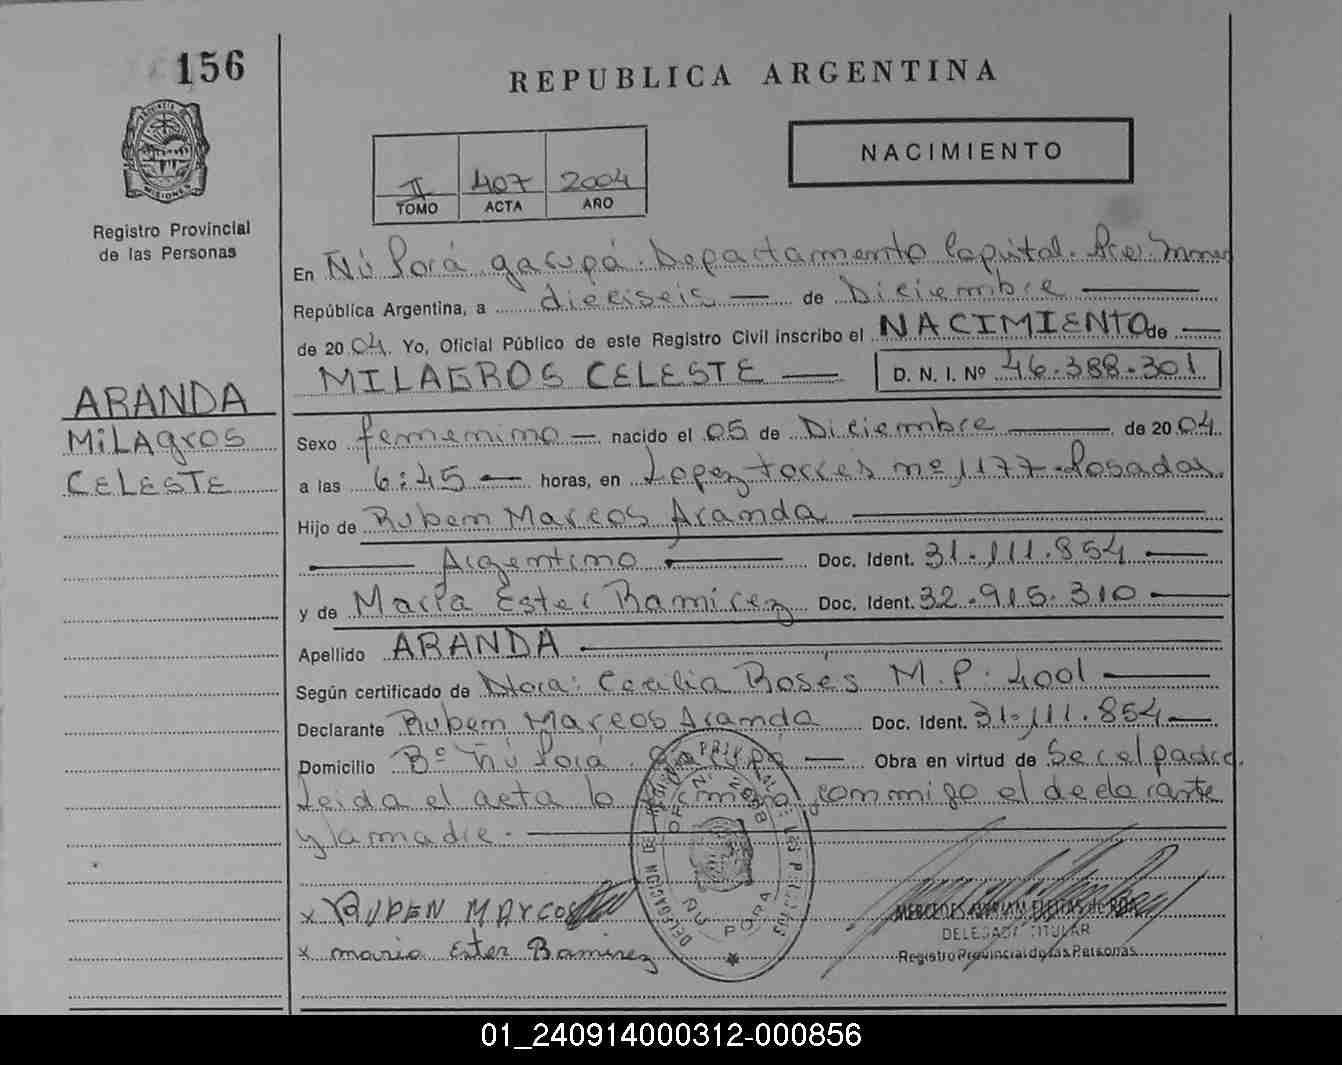 156
REPUBLICA ARGENTINA
NACIMIENTO
II 407 2004
TOMO ACTA AÑO
PROVINCIA DE MISIONES
Registro Provincial
de las Personas
En Ñú Porá garupá. Departamento Capital. Pcia. Mnes
República Argentina, a dieciseis — de Diciembre —
de 2004. Yo, Oficial Público de este Registro Civil inscribo el NACIMIENTO de —
MILAGROS CELESTE — D. N. I. Nº 46.388.301
ARANDA
MiLAgros
CELESTE
Sexo femenino — nacido el 05 de Diciembre — de 2004.
a las 6:45 — horas, en Lopez torres nº 1177 - Posadas.
Hijo de Ruben Marcos Aranda —
— Argentino — Doc. Ident. 31.111.854 —
y de Maria Ester Ramirez Doc. Ident. 32.915.310 —
Apellido ARANDA —
Según certificado de Dtora: Cecilia Rosés M.P. 4001 —
Declarante Ruben Marcos Aranda Doc. Ident. 31.111.854 —
Domicilio Bº Ñú Porá. Garupá — Obra en virtud de Ser el padre.
Leida el acta lo firman conmigo el declarante
y la madre. —
x RUBEN MARCOS
x maria Ester Ramirez
DELEGACION DEL REGISTRO PROVINCIAL DE LAS PERSONAS
OFIC. 2088
ÑU PORA
MERCEDES MIRIAM FLEITAS de ROA
DELEGADA TITULAR
Registro Provincial de las Personas
01_240914000312-000856